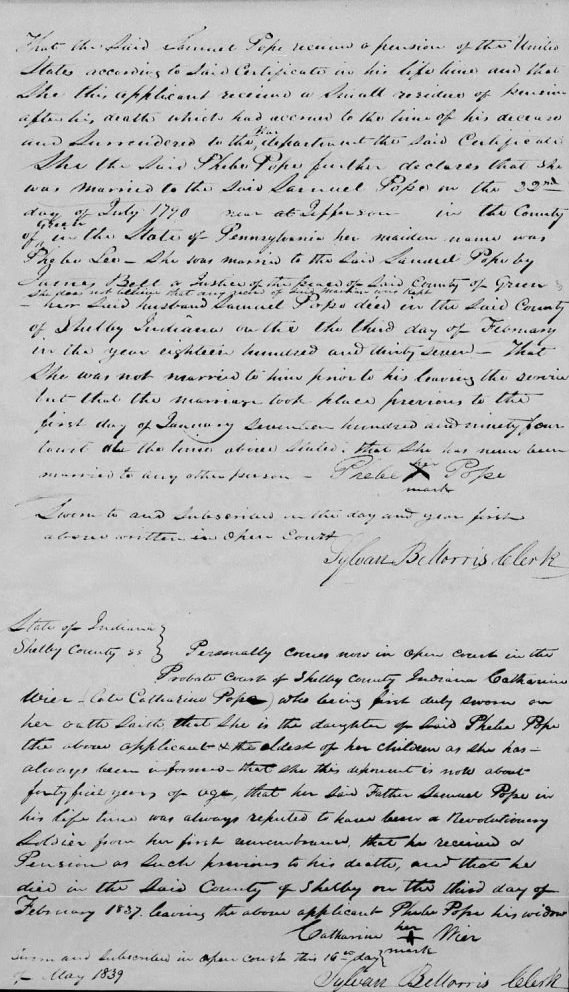 That the Said Samuel Pope receive a pension of the United
States according to Said Certificate in his life time and that
She this applicant received a Small residue of pension
after his death which had accrued to the time of his decease
and Surrendered to the War department the Said Certificate
She the Said Phebe Pope further declares that She
was married to the Said Samuel Pope on the 22nd
day of July 1790 near at Jefferson in the County
of Green in the State of Pennsylvania her maiden name was
Phebe Lee - She was married to the Said Samuel Pope by
James Bell a Justice of the peace of Said County of Green
She does not believe that any record of Said marriage was kept
- her Said husband Samuel Pope died in the Said County
of Shelby Indiana on the the third day of February
in the year eighteen hundred and thirty Seven - That
She was not married to him prior to his leaving the service
but that the marriage took place previous to the
first day of January Seventeen hundred and ninety four
at the time above Stated. that She has never been
married to any other person - Phebe her X mark Pope
Sworn to and Subscribed on the day and year first
above written in Open Court
Sylvan B Morris Clerk
State of Indiana }
Shelby County ss } Personally comes now in open court in the
Probate Court of Shelby County Indiana Catharine
Wier (late Catharine Pope) who being first duly sworn on
her oath Saith that She is the daughter of Said Phebe Pope
the above applicant & the eldest of her children as She has -
always been informed - that She this deponent is now about
forty five years of age, that her Said Father Samuel Pope in
his life time was always reputed to have been a Revolutionary
Soldier from her first remembrance, that he received a
Pension as Such previous to his death, and that he
died in the Said County of Shelby on the third day of
February 1837. leaving the above applicant Phebe Pope his widow
Catharine her X mark Wier
Sworn and Subscribed in open court this 16th day
of May 1839 Sylvan B Morris Clerk